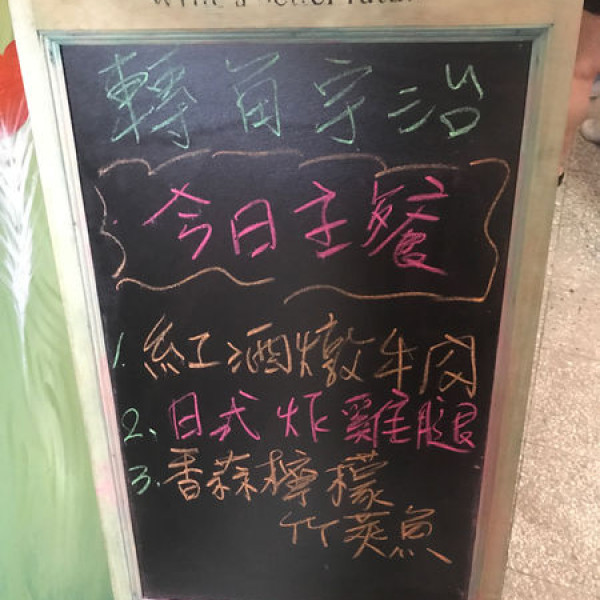 轉角宇治
今日主餐
1. 紅酒燉牛肉
2、日式炸雞腿
3. 香蒜檸檬
竹莢魚